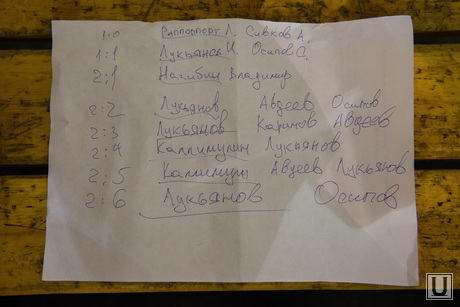 1:0 Раппопорт Л. Сивков А.
1:1 Лукьянов И. Осипов С.
2:1 Нагибин Владимир
2:2 Лукьянов Авдеев Осипов
2:3 Лукьянов Каримов Авдеев
2:4 Каллимулин Лукьянов
2:5 Каллимулин Авдеев Лукьянов
2:6 Лукьянов Осипов
U